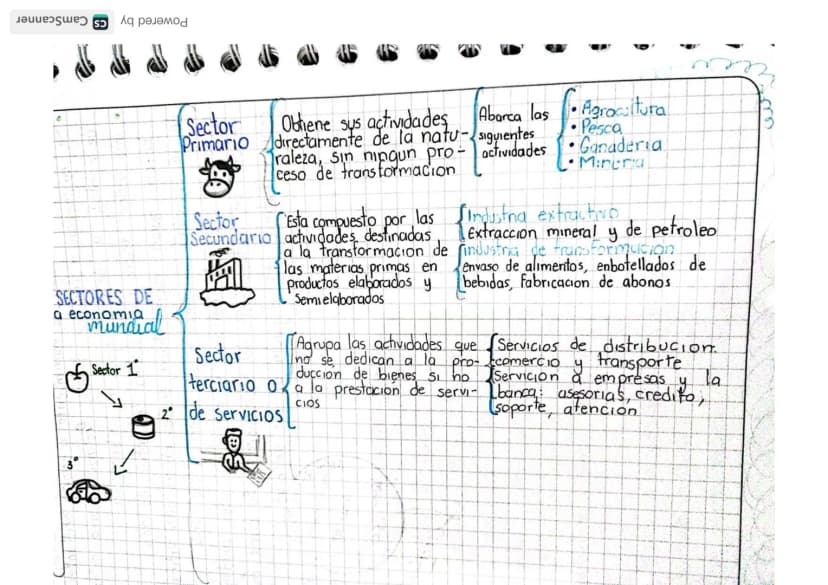 Powered by CS CamScanner
Sector
Primario
Obtiene sus actividades
directamente de la natu-
raleza, sin ningun pro-
ceso de transformacion
Abarca las
siguientes
actividades
• Agrocultura
• Pesca
• Ganaderia
• Mineria
Sector
Secundario
Esta compuesto por las
actividades destinadas
a la transformacion de
las materias primas en
productos elaborados y
semielaborados
Industria extractivo
Extraccion mineral y de petroleo
industria de transformacion
envaso de alimentos, enbotellados de
bebidas, Fabricacion de abonos
SECTORES DE
a economia
mundial
Sector
terciario o
de servicios
Agrupa las actividades que
no se dedican a la pro-
duccion de bienes si no
a la prestacion de servi-
cios
Servicios de distribucion:
comercio y transporte
Servicion a empresas y la
banca: asesorias, credito,
soporte, atencion
Sector 1°
2°
3°